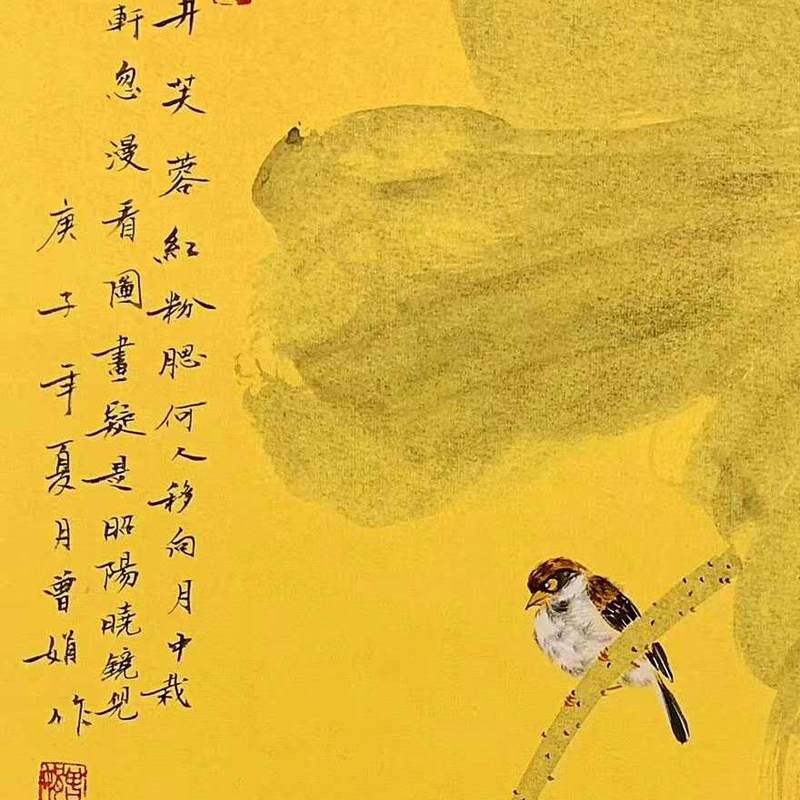 井芙蓉紅粉腮何人移向月中栽
軒忽漫看圖畫疑是昭陽曉鏡
庚子年夏月曾娟作